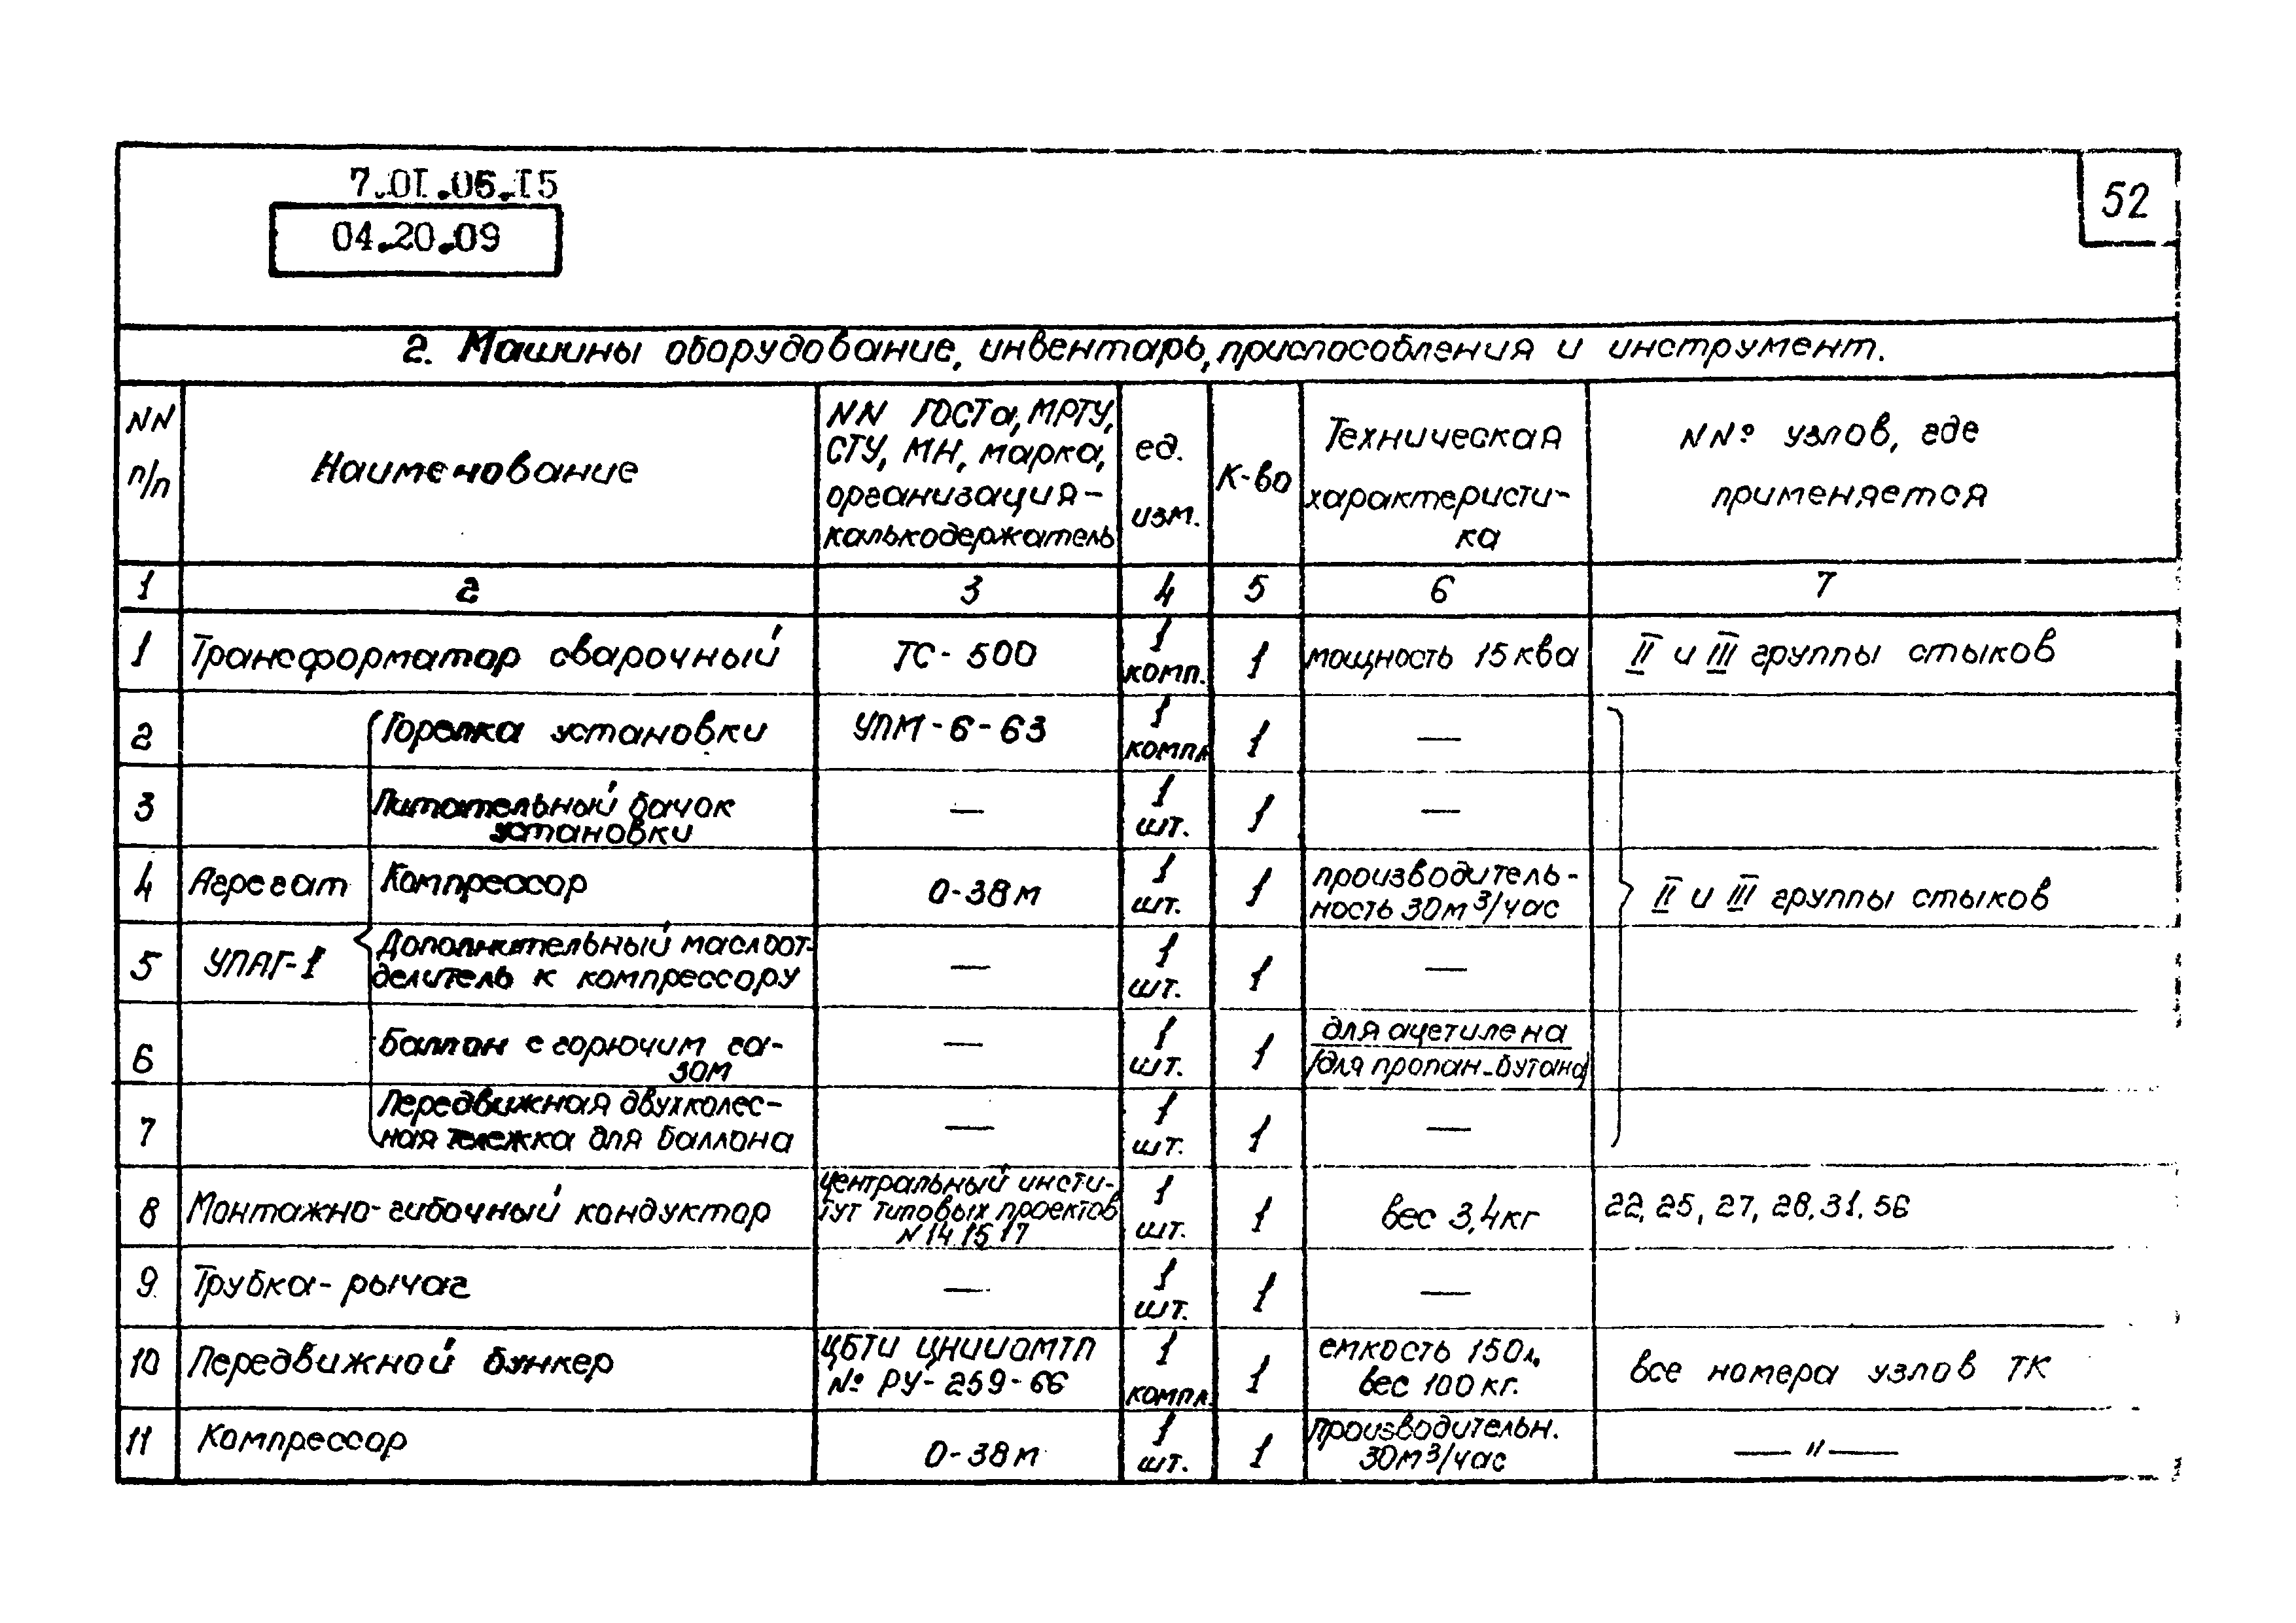 7.01.06.15
04.20.09
52
2. Машины оборудование, инвентарь, приспособления и инструмент.
NN п/п
Наименование
NN ГОСТа, МРТУ,
СТУ, МН, марка,
организация-
калькодержатель
ед.
изм.
К-во
Техническая
характеристи-
ка
NNº узлов, где
применяется
1 2 3 4 5 6 7
1 Трансформатор сварочный ТС-500 1 комп. 1 мощность 15 ква II и III группы стыков
Агрегат
УПАГ-1
2 Горелка установки УПМ-6-63 1 компл 1 —
3 Питательный бачок
установки — 1 шт. 1 —
4 Компрессор О-38м 1 шт. 1 производитель-
ность 30м³/час
II и III группы стыков
5 Дополнительный маслоот-
делитель к компрессору — 1 шт. 1 —
6 Баллон с горючим га-
зом — 1 шт. 1 для ацетилена
/для пропан-бутана/
7 Передвижная двухколес-
ная тележка для баллона — 1 шт. 1 —
8 Монтажно-гибочный кондуктор
Центральный инсти-
тут типовых проектов
N 14, 15, 17
1 шт. 1 вес 3,4кг 22, 25, 27, 28, 31, 56
9 Трубка-рычаг — 1 шт. 1 —
10 Передвижной бункер
ЦБТИ ЦНИИОМТП
№ РУ-259-66
1 компл. 1
емкость 150л,
вес 100 кг.
все номера узлов ТК
11 Компрессор О-38м 1 шт. 1
производительн.
30м³/час
— " —